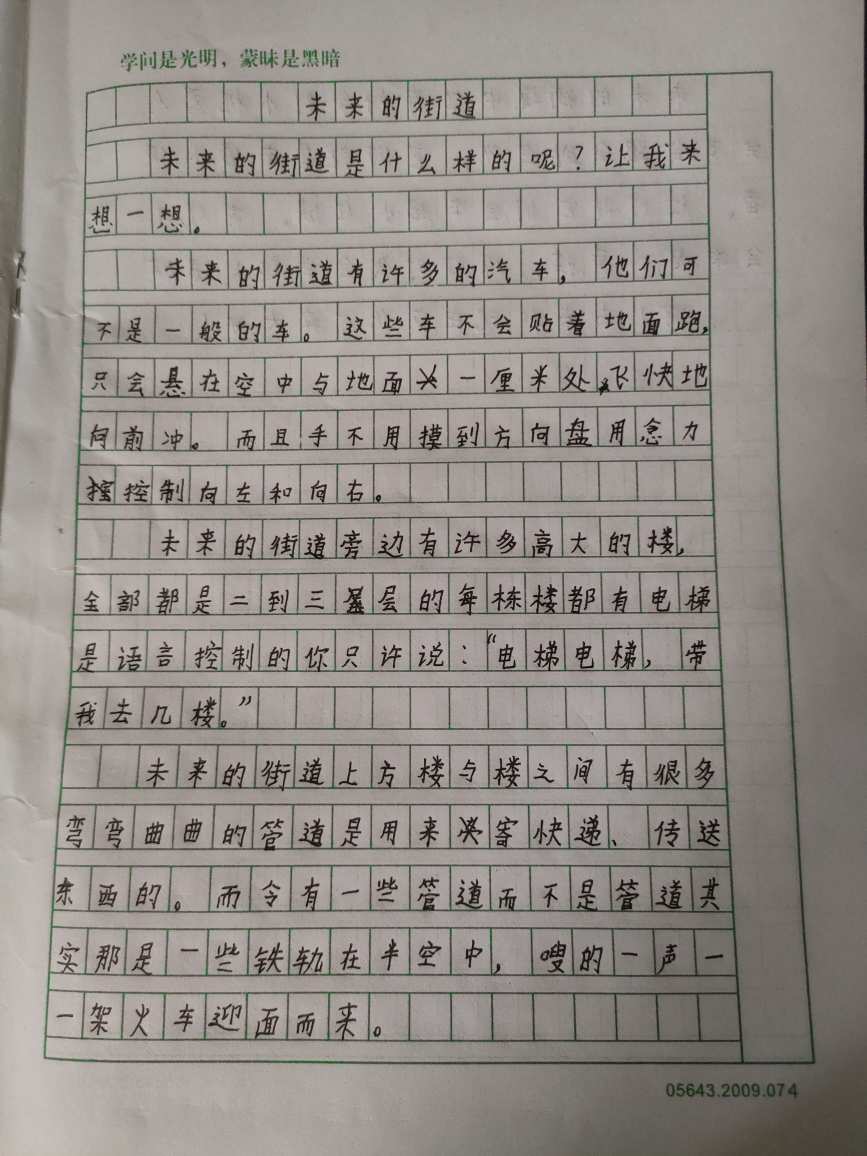 学问是光明，蒙昧是黑暗
未来的街道
未来的街道是什么样的呢？让我来
想一想。
未来的街道有许多的汽车，他们可
不是一般的车。这些车不会贴着地面跑，
只会悬在空中与地面一厘米处，飞快地
向前冲。而且手不用摸到方向盘用念力
控制向左和向右。
未来的街道旁边有许多高大的楼，
全部都是二到三层的每栋楼都有电梯
是语音控制的你只许说：“电梯电梯，带
我去几楼。”
未来的街道上方楼与楼之间有很多
弯弯曲曲的管道是用来寄快递、传送
东西的。而令有一些管道而不是管道其
实那是一些铁轨在半空中，嗖的一声一
一架火车迎面而来。
05643.2009.074